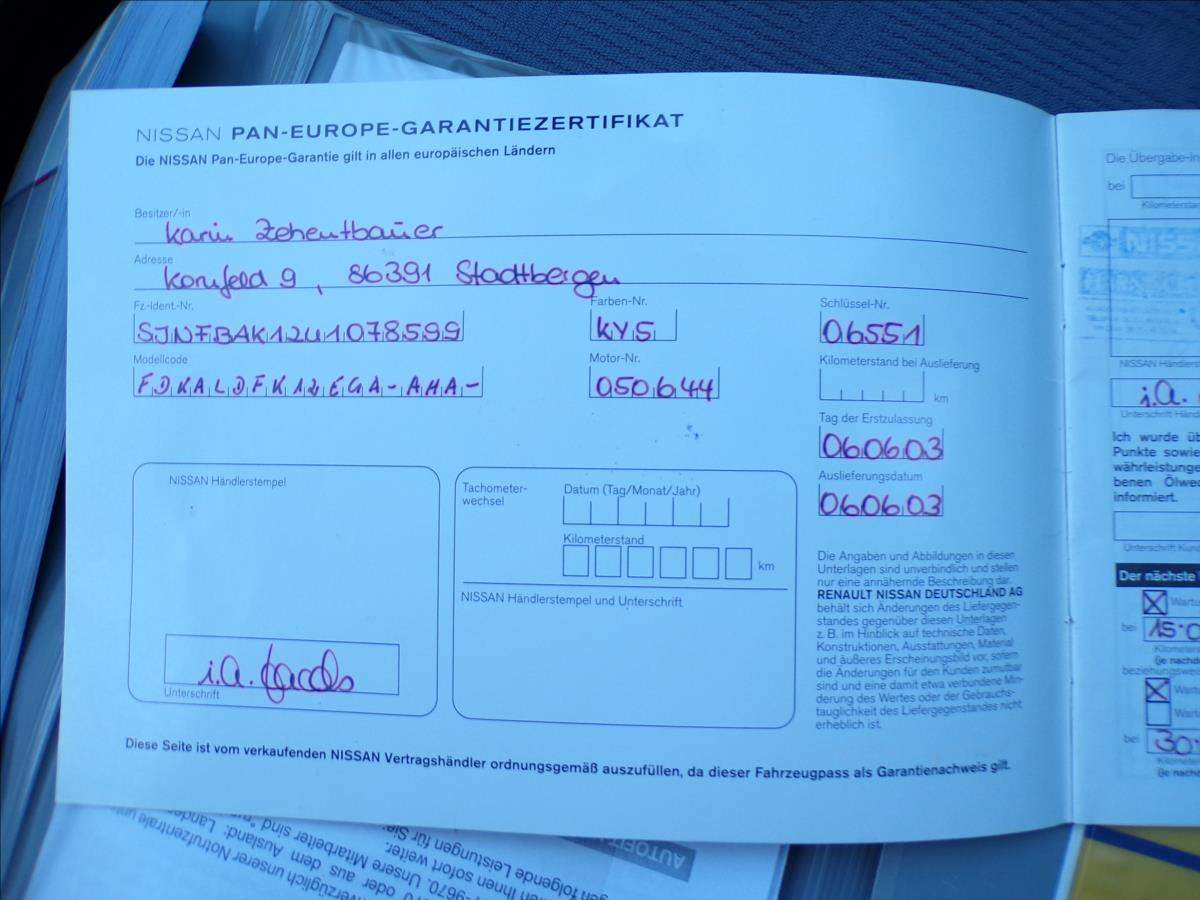 NISSAN PAN-EUROPE-GARANTIEZERTIFIKAT
Die NISSAN Pan-Europe-Garantie gilt in allen europäischen Ländern
Besitzer/-in
Karin Zehentbauer
Adresse
Kornfeld 9, 86391 Stadtbergen
Fz-Ident.-Nr.
SJNFBAK12U1078599
Farben-Nr.
KY5
Schlüssel-Nr.
06551
Modellcode
FDKALDFK12EGA-AHA-
Motor-Nr.
050644
Kilometerstand bei Auslieferung
km
Tag der Erstzulassung
060603
Auslieferungsdatum
060603
NISSAN Händlerstempel
i.A. Jacobs
Unterschrift
Tachometer-
wechsel
Datum (Tag/Monat/Jahr)
Kilometerstand
km
NISSAN Händlerstempel und Unterschrift
Die Angaben und Abbildungen in diesen
Unterlagen sind unverbindlich und stellen
nur eine annähernde Beschreibung dar.
RENAULT NISSAN DEUTSCHLAND AG
behält sich Änderungen des Liefergegen-
standes gegenüber diesen Unterlagen
z. B. im Hinblick auf technische Daten,
Konstruktionen, Ausstattungen, Material
und äußeres Erscheinungsbild vor, sofern
die Änderungen für den Kunden zumutbar
sind und eine damit etwa verbundene Min-
derung des Wertes oder der Gebrauchs-
tauglichkeit des Liefergegenstandes nicht
erheblich ist.
Diese Seite ist vom verkaufenden NISSAN Vertragshändler ordnungsgemäß auszufüllen, da dieser Fahrzeugpass als Garantienachweis gilt.
Die Übergabe-In
bei
Kilometerstan
NISS
NISSAN Händlerst
i.A.
Unterschrift Händ
Ich wurde üb
Punkte sowie
währleistunge
benen Ölwec
informiert.
Unterschrift Kund
Der nächste
Wartu
bei 15.0
Kilometers
(je nachd
beziehungsweise
Wart
Wart
bei 30.
Kilometer
(je nach
AUTOFI
gen folgende Leistungen für Sie:
en Ihnen sofort weiter.
9670. Unsere Mitarbeiter sind
0 oder aus dem Ausland: Lande
verzüglich unserer Notrufzentrale un